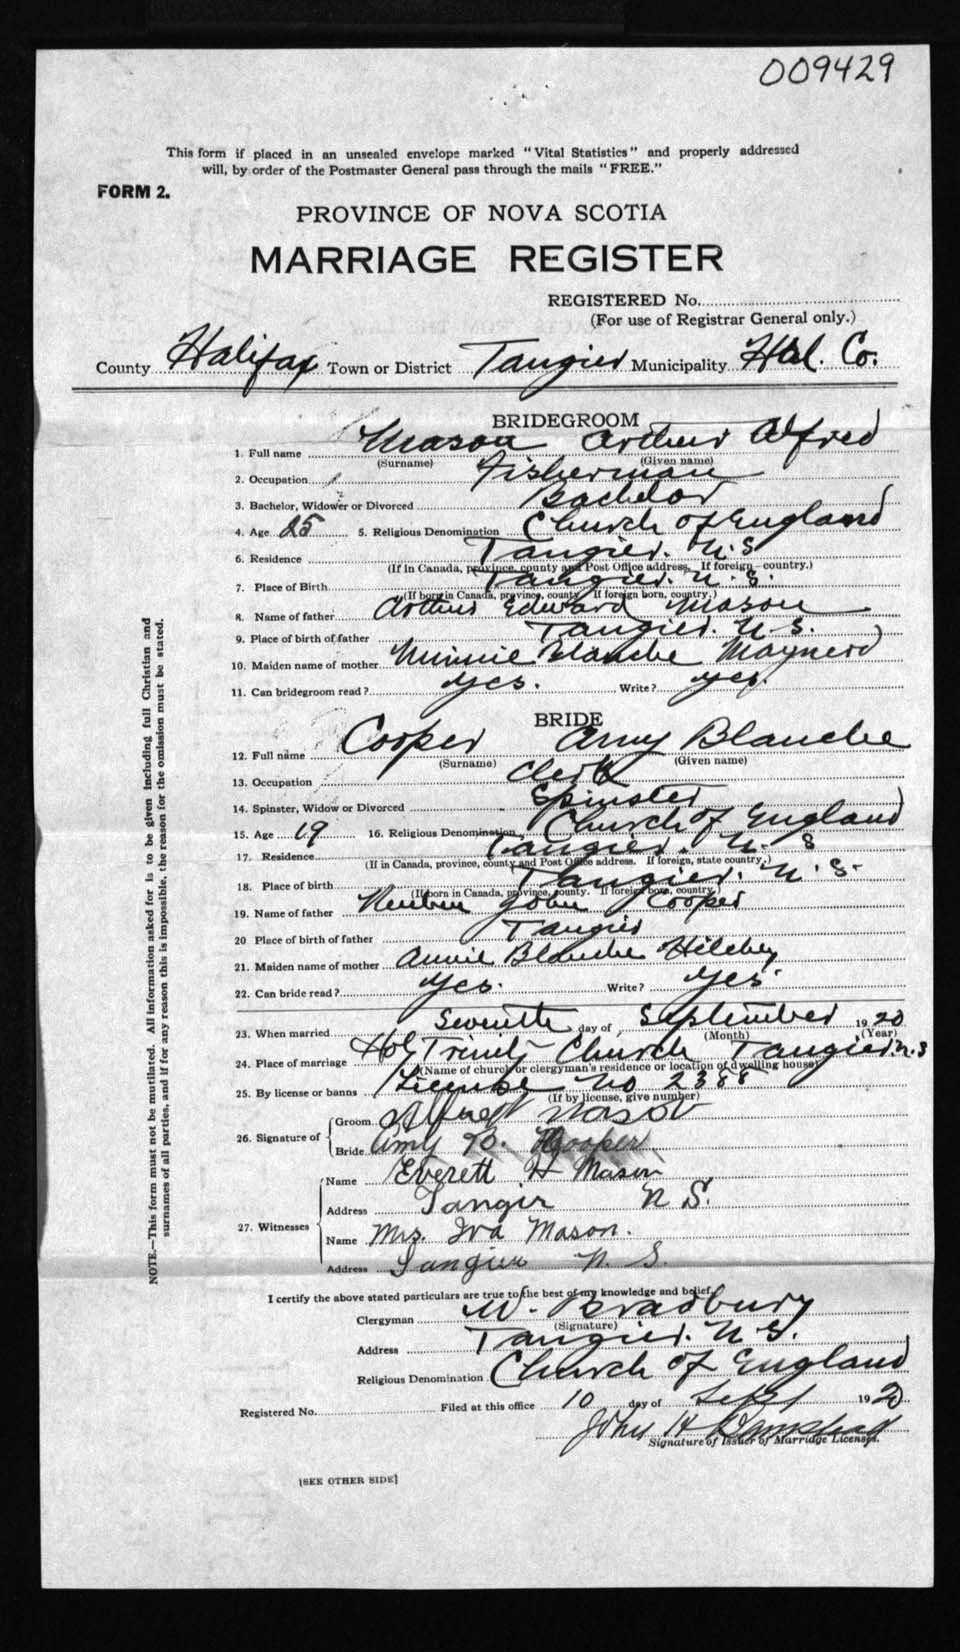 009429
This form if placed in an unsealed envelope marked "Vital Statistics" and properly addressed
will, by order of the Postmaster General pass through the mails "FREE."
FORM 2.
PROVINCE OF NOVA SCOTIA
MARRIAGE REGISTER
REGISTERED No.
(For use of Registrar General only.)
County Halifax Town or District Tangier Municipality Hal. Co.
BRIDEGROOM
1. Full name Mason Arthur Alfred
(Surname) (Given name)
2. Occupation Fisherman
3. Bachelor, Widower or Divorced Bachelor
4. Age 25 5. Religious Denomination Church of England
6. Residence Tangier. N.S
(If in Canada, province, county and Post Office address. If foreign—country.)
7. Place of Birth Tangier. N.S.
(If born in Canada, province, county. If foreign born, country.)
8. Name of father Arthur Edward Mason
9. Place of birth of father Tangier. N.S.
10. Maiden name of mother Minnie Blanche Maynerd
11. Can bridegroom read? Yes. Write? Yes.
BRIDE
12. Full name Cooper Amy Blanche
(Surname) (Given name)
13. Occupation Clerk
14. Spinster, Widow or Divorced Spinster
15. Age 19 16. Religious Denomination Church of England
17. Residence Tangier. N. S
(If in Canada, province, county and Post Office address. If foreign, state country.)
18. Place of birth Tangier. N. S.
(If born in Canada, province, county. If foreign born, country.)
19. Name of father Reuben John Cooper
20 Place of birth of father Tangier
21. Maiden name of mother Annie Blanche Hilchey
22. Can bride read? Yes. Write? Yes
23. When married Seventh day of September 1920
(Month) (Year)
24. Place of marriage Holy Trinity Church Tangier. N.S
(Name of church or clergyman's residence or location of dwelling house)
25. By license or banns License No 2388
(If by license, give number)
26. Signature of Groom Alfred Mason
Bride Amy B. Cooper
27. Witnesses Name Everett H Mason
Address Tangir N S.
Name Mrs. Iva Mason.
Address Tangier N. S.
I certify the above stated particulars are true to the best of my knowledge and belief.
Clergyman W. Bradbury
(Signature)
Address Tangier. N.S.
Religious Denomination Church of England
Registered No. Filed at this office 10 day of Sept 1920
John H
Signature of Issuer of Marriage Licenses.
[SEE OTHER SIDE]
NOTE.—This form must not be mutilated. All information asked for is to be given including full Christian and
surnames of all parties, and if for any reason this is impossible, the reason for the omission must be stated.